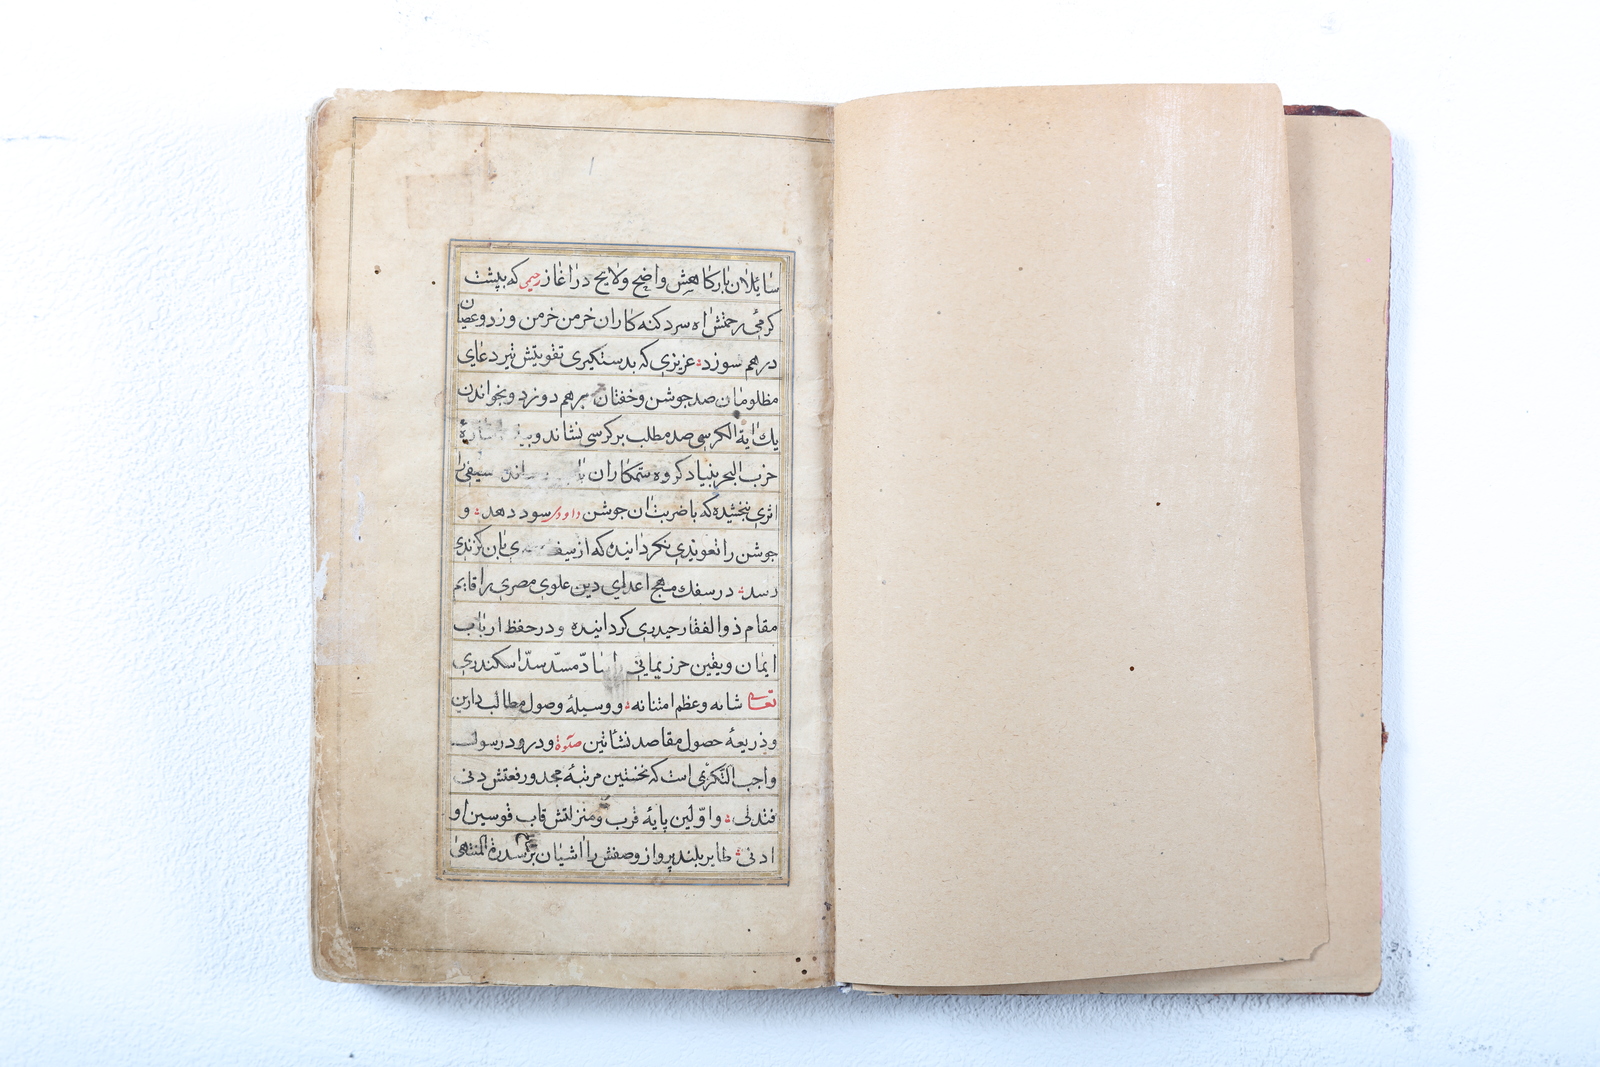 سایلان بارکاهش واضح ولایح در اغاز رحیمی که بپشت
کرمئ رحمتش اه سرد کنه کاران خرمن خرمن وزر وعصیان
در هم سوزد عزیزی که بدستکیری تقویتش تیر دعای
مظلومان صد جوشن وخفتان برهم دوزد وبخواندن
یك ایة الکرسی صد مطلب بر کرسی نشاند
حزب البحر بنیاد کروه ستمکاران سیفی را
اثری بخشیده که با ضربت ان جوشن داودی سود دهد و
جوشن را تعویذی نکردانیده که از بان کزندی
رسد در سفك مهج اعدای دین علوی مصری را قایم
مقام ذوالفقار حیدری کردانیده ودر حفظ ارباب
ایمان ویقین حرز یمانی مسدّ سدّ اسکندری
تعالی شانه وعظم امتنانه ووسیلهٔ وصول مطالب دارین
وذریعهٔ حصول مقاصد نشاتین صلوة ودرود رسول
واجب التکریمی است که نخستین مرتبهٔ مجد ورفعتش دنی
فتدلی واوّلین پایهٔ قرب ومنزلتش قاب قوسین او
ادنی طایر بلند پرواز وصفش را اشیان بر سدرة المنتهی